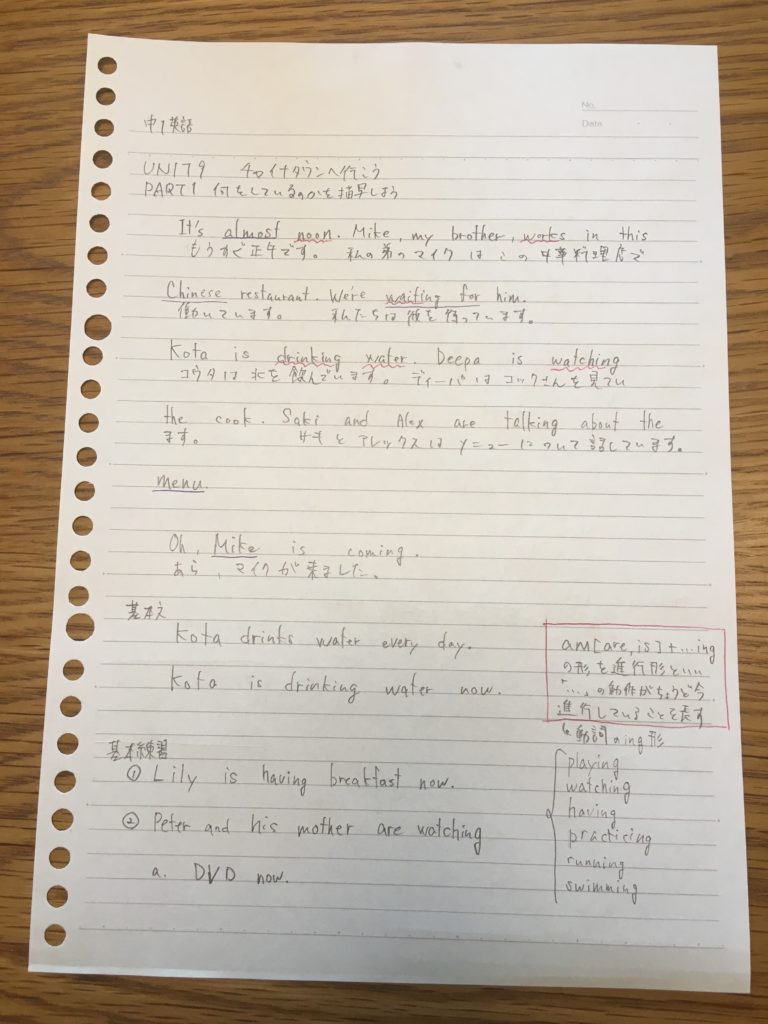 No.
Date
中1英語
UNIT9 チャイナタウンへ行こう
PART1 何をしているのかを描写しよう
It's almost noon. Mike, my brother, works in this
もうすぐ正午です。 私の弟のマイクはこの中華料理店で
Chinese restaurant. We're waiting for him.
働いています。 私たちは彼を待っています。
Kota is drinking water. Deepa is watching
コウタは水を飲んでいます。ディーパはコックさんを見てい
the cook. Saki and Alex are talking about the
ます。 サキとアレックスはメニューについて話しています。
menu.
Oh, Mike is coming.
あら、マイクが来ました。
基本文
Kota drinks water every day.
Kota is drinking water now.
am[are,is]+…ing
の形を進行形といい
「…」の動作がちょうど今
進行していることを表す
動詞のing形
playing
watching
having
practicing
running
swimming
基本練習
① Lily is having breakfast now.
② Peter and his mother are watching
a. DVD now.